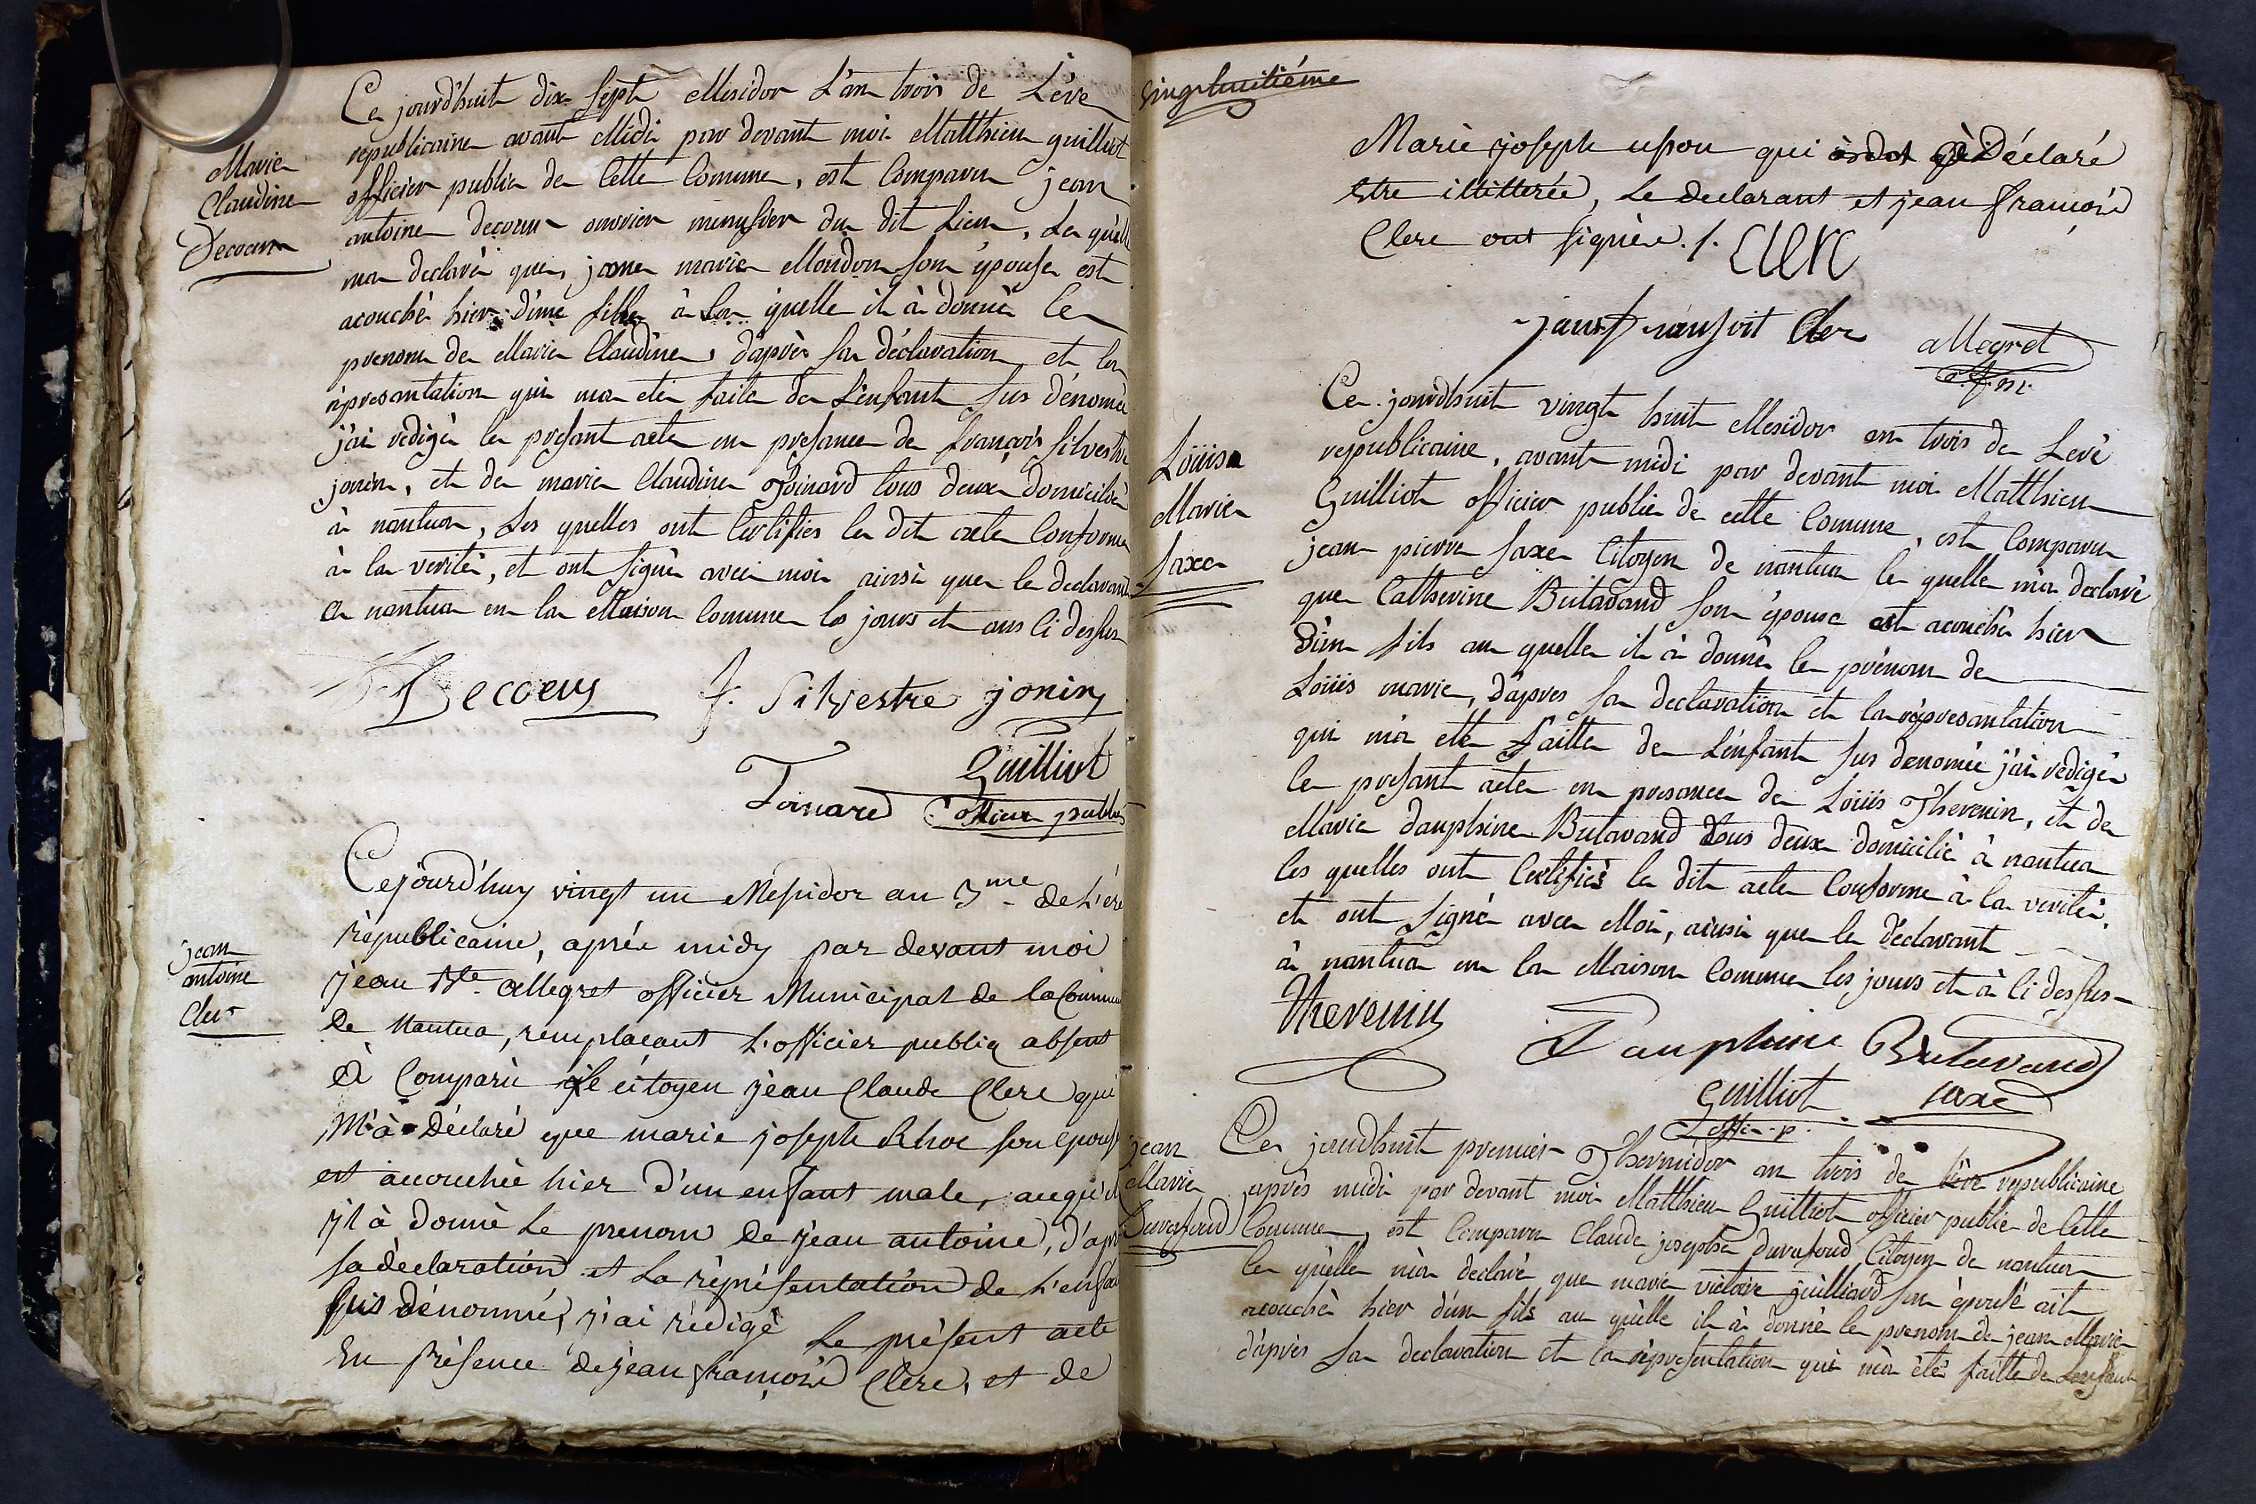 Marie
Claudine
Decoeur
Ce jourd'huit dix Sept Messidor L'an trois de L'ére
republicaine avant Midi par devant moi Matthieu guilliot
officier public de Cette Comune, est Comparu jean
antoine decoeur ouvrier menusier du dit Lieu, Le quelle
ma declaré que, jeane marie Moudon son épouse est
acouché hier d'une fille à la quelle il à donné le
prenom de Marie Claudine, d'après sa déclaration et la
représantation qui ma eté faite de L'enfant sus dénomé
j'ai redigé le présant acte en présance de françois Silvestre
jonin, et de marie Claudine Toinard tous deux domicilié
à nantua, Les quelles ont Certifiés le dit acte Conforme
à la verité, et ont signé avec moi ainsi que le declarant
a nantua en la Maison Comune les jours et ans Ci dessus
Decoeur f. Silvestre jonin
Guilliot
Toinard officier public
jean
antoine
Clerc
Cejourd'huy vingt un Messidor an 3me de L'ére
républicaine, après midy par devant moi
jean Bte allegret officier Municipal de la Commune
De Nantua, remplacant L'officier public absent
à Comparu le citoyen jean Claude Clerc qui
M'à Déclaré que marie joseph Rhoe son epouse
est accouchée hier D'un enfant male, auquel
il à donné Le prenom De jean antoine, d'après
sa déclaration et La représentation de L'enfant
sus dénommé, j'ai rédigé Le présent acte
En présence de jean françois Clerc, et de
vingthuitiéme
Marie joseph upon qui Déclaré
Etre illitterée, Le declarant et jean françois
Clerc ont signée ./. Clerc
jant fransoit Cler allegret
o.f.m.
Loüis
Marie
Saxe
Ce jourdhuit vingt huit Messidor an trois de Leré
republicaine, avant midi par devant moi Matthieu
Guilliot officier public de cette Comune, est Comparu
jean pierre Saxe Citoyen de nantua le quelle m'a declaré
que Catherine Butavand son épouse est acouché hier
D'un fils au quelle il à donné le prénom de
Loüis marie, d'apres sa declaration et la représantation
qui m'a eté faitte de L'enfant sus denomée j'ai redigé
le présant acte en presance de Loüis Thevenin, et de
Marie dauphine Butavand tous deux domicilié à nantua
les quelles ont Certifiés le dit acte Conforme à la verité,
et ont signé avec Moi, ainsi que le déclarant
à nantua en la Maison Comune les jours et à Ci dessus
Thevenin
Dauphine Butavand
Guilliot Saxe
L'offic. p.
jean
Marie
Duvafoud
Ce jourdhuit premier Thermidor an trois de l'ére republicaine
après midi par devant moi Matthieu Guilliot officier public de Cette
Comune, est Comparu Claude josephe Duvafoud Citoyen de nantua
le quélle m'a declaré que marie victoire juilliard son épousé ait
acouché hier d'un fils au quélle il à donné le prenom de jean Marie
d'après sa declaration et la représentation qui m'a été faitte de L'enfant